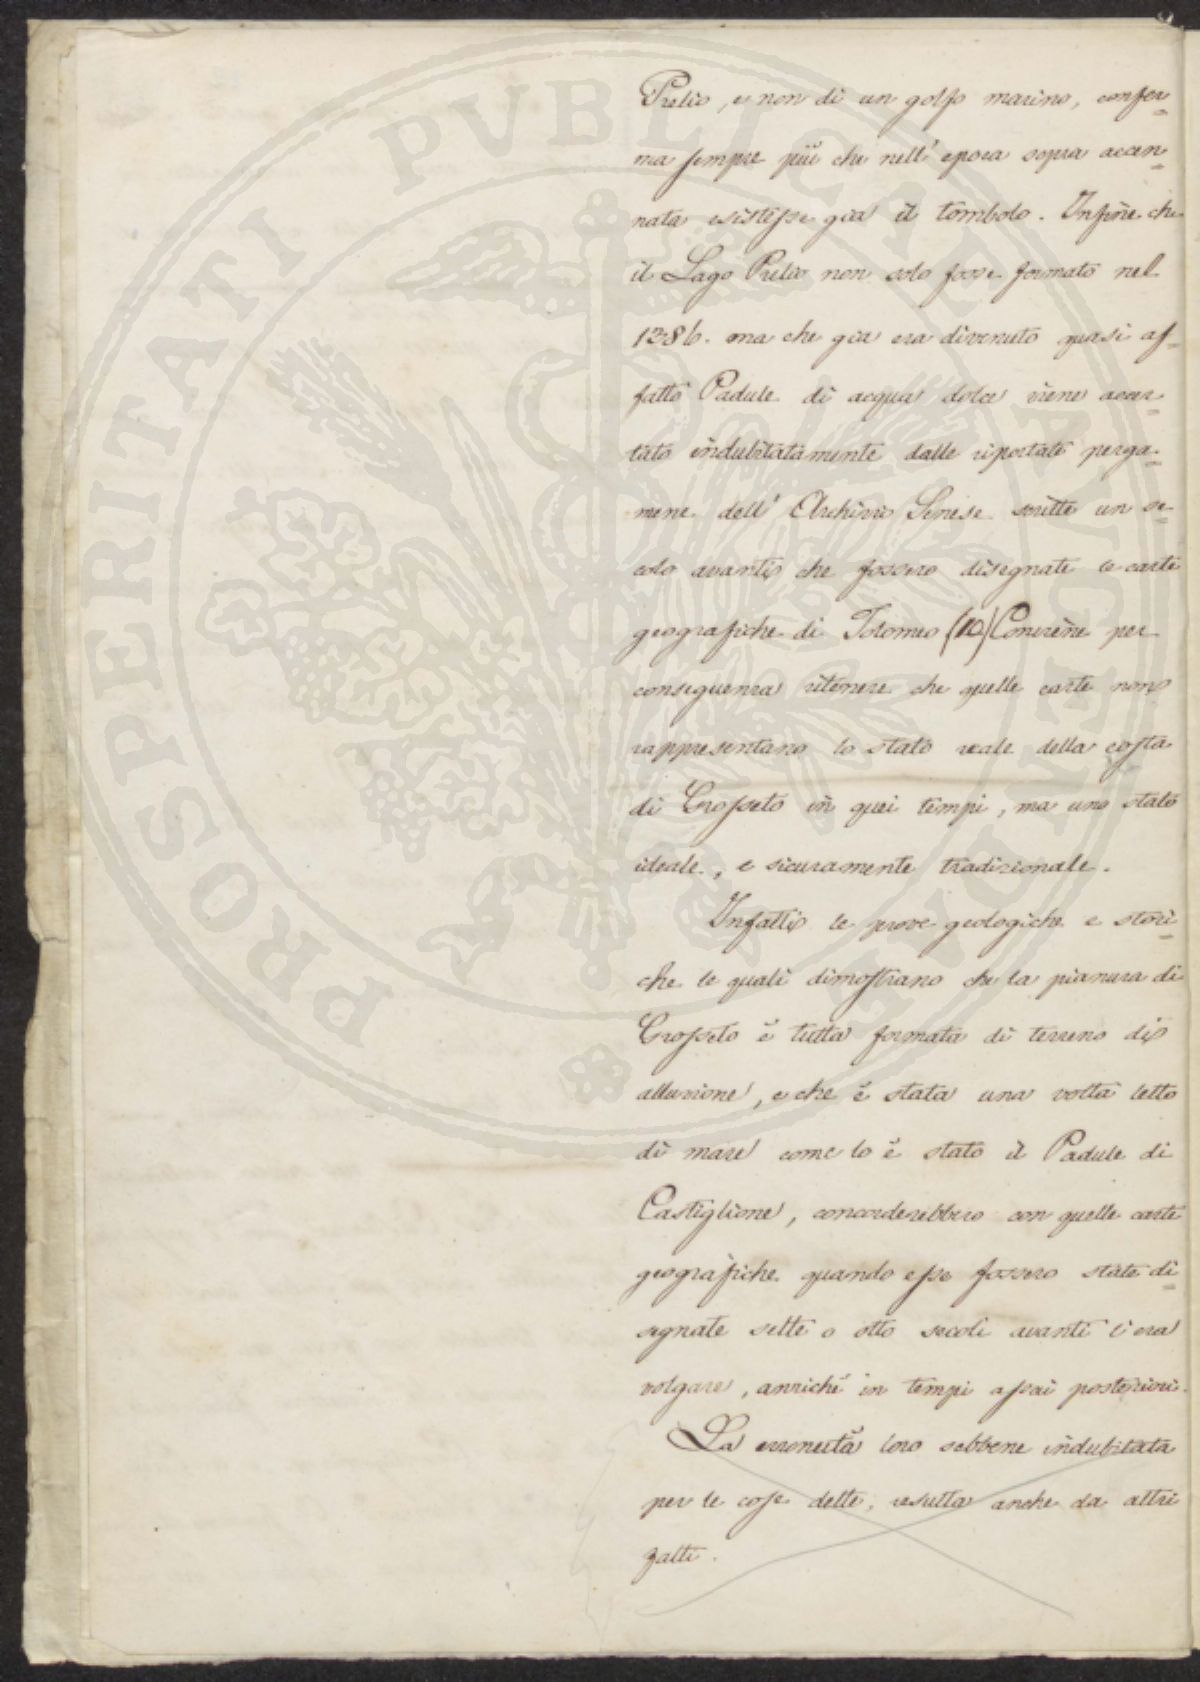 Prelio, e non di un golfo marino, confer=
ma sempre più che nell'epoca sopra accen=
nata esistesse già il tombolo. Infine che
il Lago Prelio non solo fosse formato nel
1386. ma che già era divenuto quasi af=
fatto Padule di acqua dolce viene accer=
tato indubitatamente dalle riportate perga=
mene dell'Archivio Senese scritte un se=
colo avanti che fossero disegnate le carte
geografiche di Tolomeo (10) Conviene per
conseguenza ritenere che quelle carte non
rappresentano lo stato reale della costa
di Grosseto in quei tempi, ma uno stato
ideale, e sicuramente tradizionale.
Infatti le prove geologiche e stori=
che le quali dimostrano che la pianura di
Grosseto è tutta formata di terreno di
alluvione, e che è stata una volta letto
di mare come lo è stato il Padule di
Castiglione, concorderebbero con quelle carte
geografiche quando esse fossero state di=
segnate sette o otto secoli avanti l'era
volgare, anziché in tempi assai posteriori.
La erroneità loro sebbene indubitata
per le cose dette, resulta anche da altri
fatti.
PROSPERITATI PVBLICAE AVGENDAE